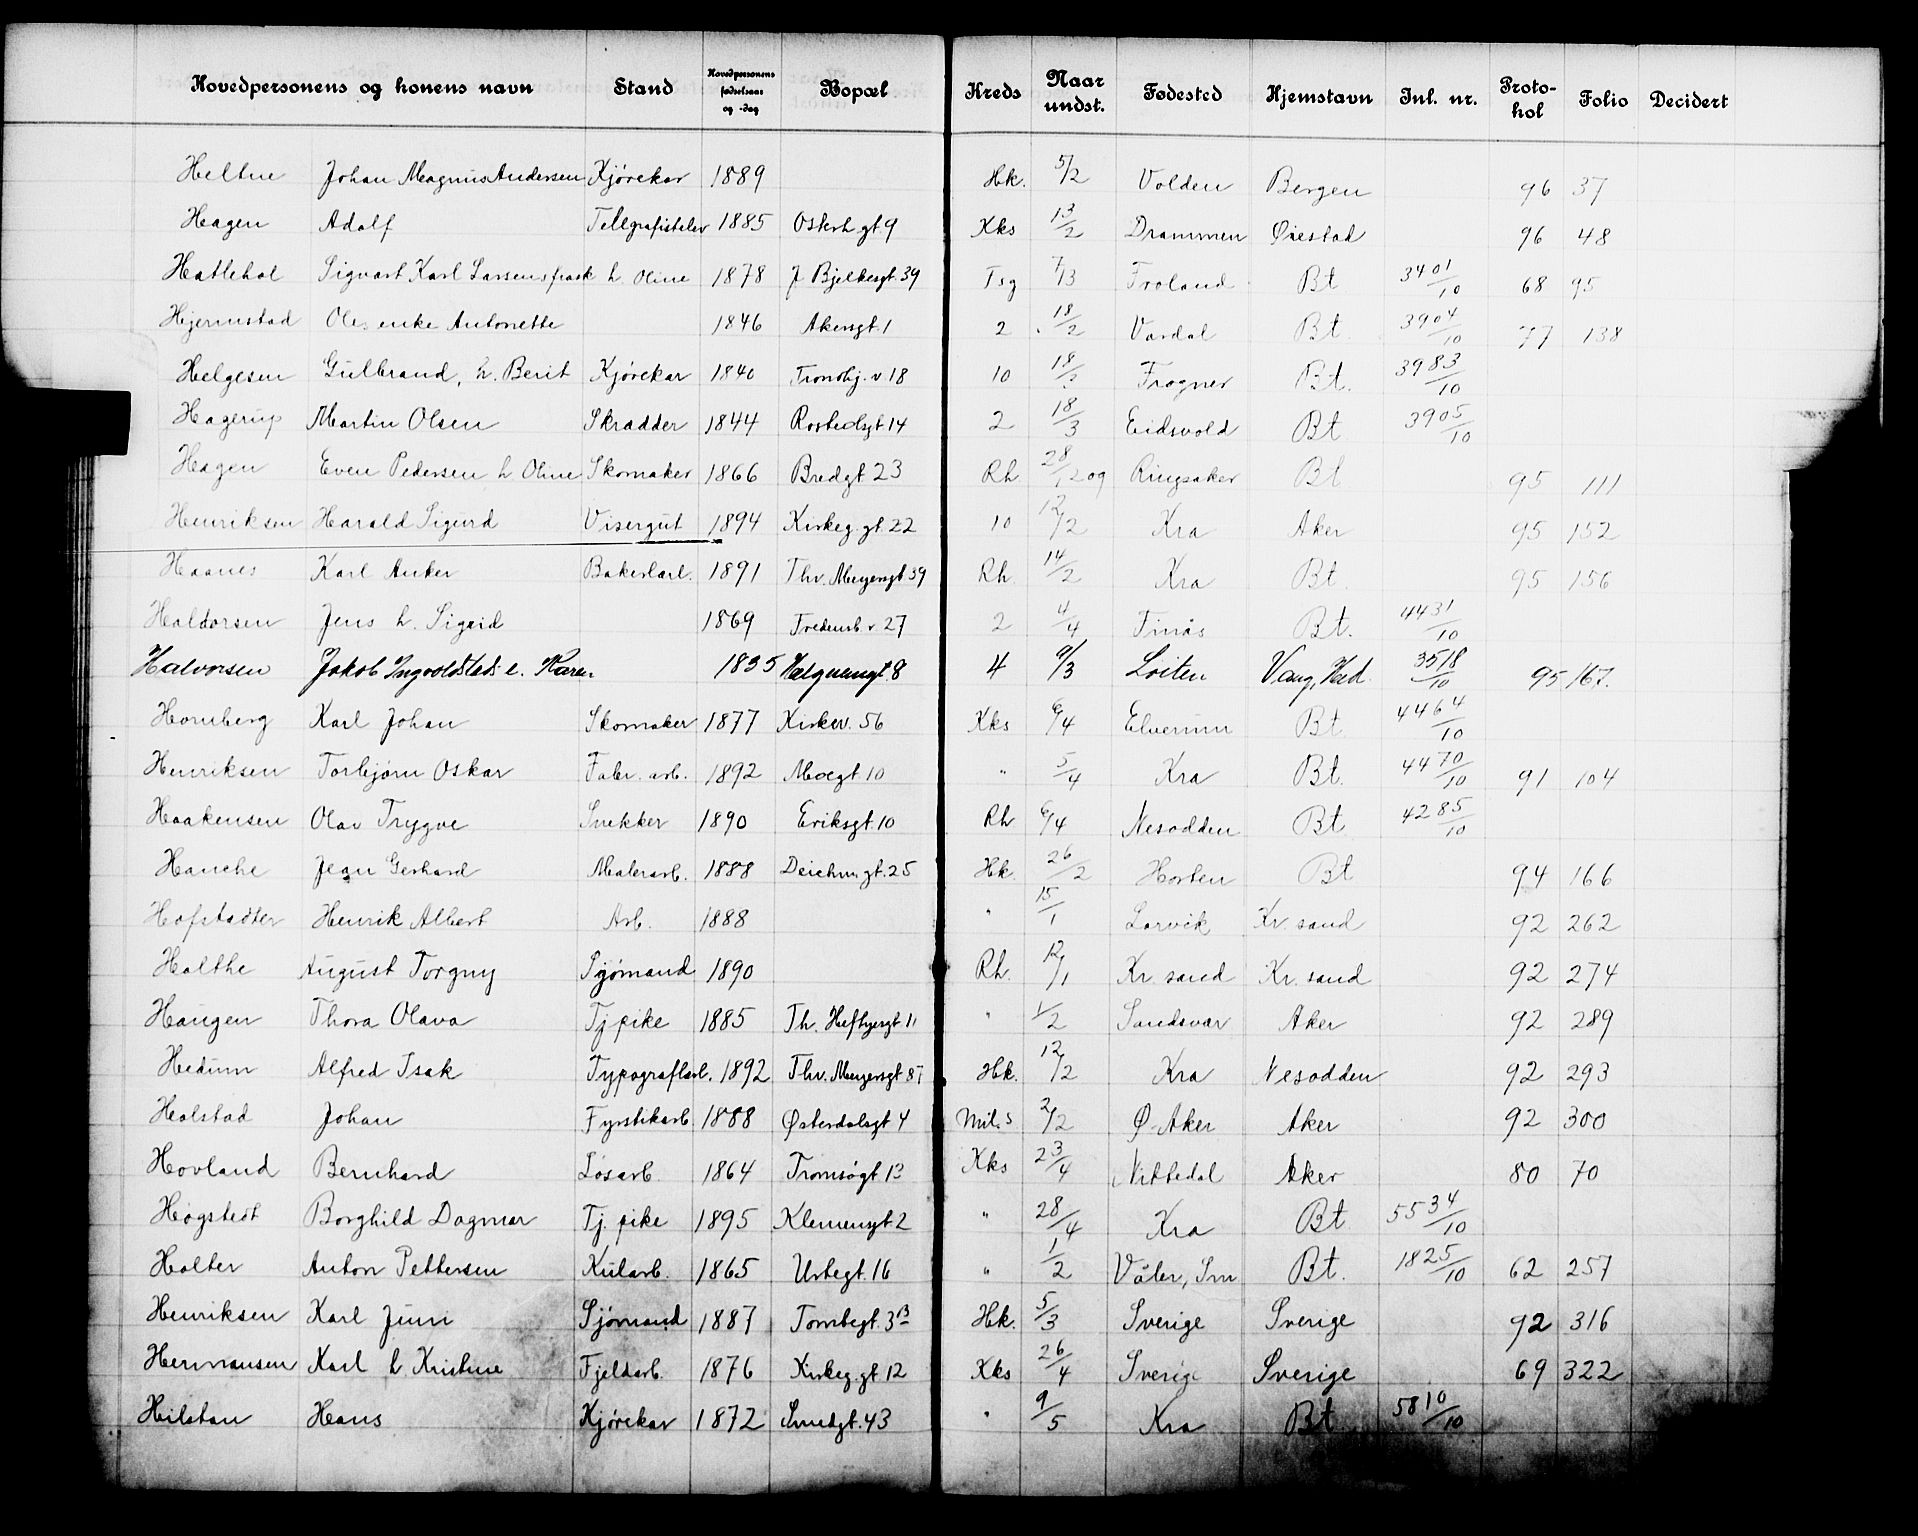 Hovedpersonens og konens navn Stand Hovedpersonens fødselsaar og -dag Bopæl Kreds Naar undst. Fødested Hjemstavn Inl. nr. Proto-kol Folio Decidert
Heltne Johan Magnus Andersen Kjørekar 1889 Hk. 5/2 Volden Bergen 96 37
Hagen Adolf Tellgrafistelev 1885 Osterh.gt 9 Kks 13/2 Drammen Øiestad 96 48
Hatlehol Sigvart Karl Larsens frask h. Oline 1878 J Bjelkesgt 39 Tsg 7/13 Froland Bt 3401/10 68 95
Hjermstad Ole, enke Antonette 1846 Akersgt. 1 2 18/2 Vardal Bt. 3904/10 77 138
Helgesen Gulbrand, h. Berit Kjørekar 1840 Trondhj. v 18 10 18/3 Frogner Bt. 3983/10
Hagerup Martin Olsen Skradder 1844 Rostedsgt 14 2 18/3 Eidsvold Bt 3905/10
Hagen Even Pedersen h Oline Skomaker 1866 Bredgt 23 Rh 28/12 09 Ringsaker Bt 95 111
Henriksen Harald Sigurd Visergut 1894 Kirkeg.gt. 22 10 12/2 Kra Aker 95 152
Haanes Karl Anker Bakerlærl. 1891 Thv. Meyersgt 39 Rh. 14/2 Kra Bt. 95 156
Haldorsen Jens h. Sigrid 1869 Fredensb. v 27 2 4/4 Finås Bt. 4431/10
Halvorsen Jakob Ingvoldstads e. Karen 1835 Helgesensgt. 8 4 9/3 Løiten Vang, Hed. 3518/10 95 167.
Hornberg Karl Johan Skomaker 1877 Kirkev. 56 Kks 6/4 Elverum Bt. 4464/10
Henriksen Torbjørn Oskar Fabr. arb. 1892 Moegt 10 " 5/4 Kra Bt. 4470/10 91 104
Haakensen Olav Trygve Snekker 1890 Eriksgt. 10 Rh 6/4 Nesodden Bt 4285/10
Hanche Jean Gerhard Malerarb. 1888 Deichm.gt. 25 Hk. 26/2 Horten Bt 94 166
Hofstadter Henrik Albert Arb. 1888 " 15/1 Larvik Kr. sand 92 262
Holthe August Torgny Sjømand 1890 Rh. 12/1 Kr. sand Kr. sand 92 274
Haugen Thora Olava Tj pike 1885 Th. Heftyesgt 11 " 1/2 Sandsvær Aker 92 289
Hedum Alfred Isak Typograflærl. 1892 Thv. Meyersgt 87 Hk. 12/2 Kra Nesodden 92 293
Holstad Johan Fyrstikarb 1888 Østerdalsgt 4 Mil.s 2/2 Ø. Aker Aker 92 300
Hovland Bernhard Løsarb. 1864 Tromsøgt 13 Kks 23/4 Nittedal Aker 80 70
Høgstedt Borghild Dagmar Tj. pike 1895 Klemensgt 2 " 28/4 Kra Bt. 5534/10
Holter Anton Pettersen Kularb. 1865 Urtegt. 16 " 1/2 Våler, Sm Bt. 1825/10 62 257
Henriksen Karl Juni Sjømand 1887 Tomtegt. 3 B Hk. 5/3 Sverige Sverige 92 316
Hermansen Karl h Kristine Fjeldarb. 1876 Kirkeg.gt 12 Kks 26/4 Sverige Sverige 69 322
Hilstan Hans Kjørekar 1872 Smedgt. 43 " 9/5 Kra Bt. 5810/10